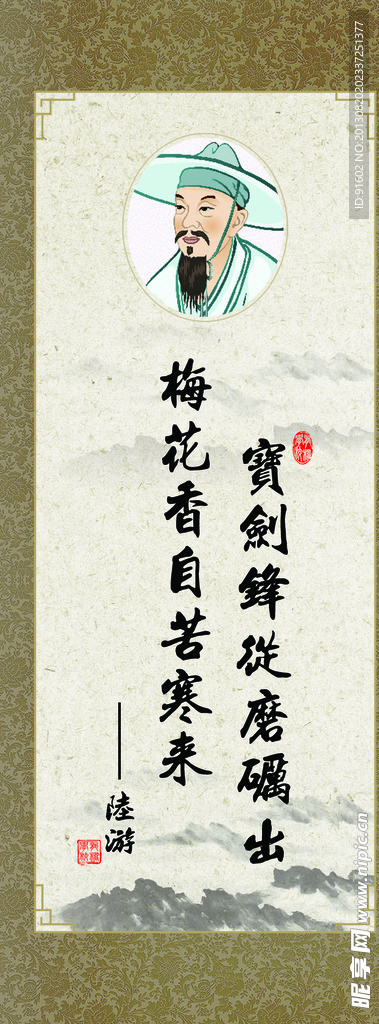 寶劍鋒從磨礪出
梅花香自苦寒来
——陸游
ID:91602 NO:20130820202337251377
昵享网 www.nipic.cn